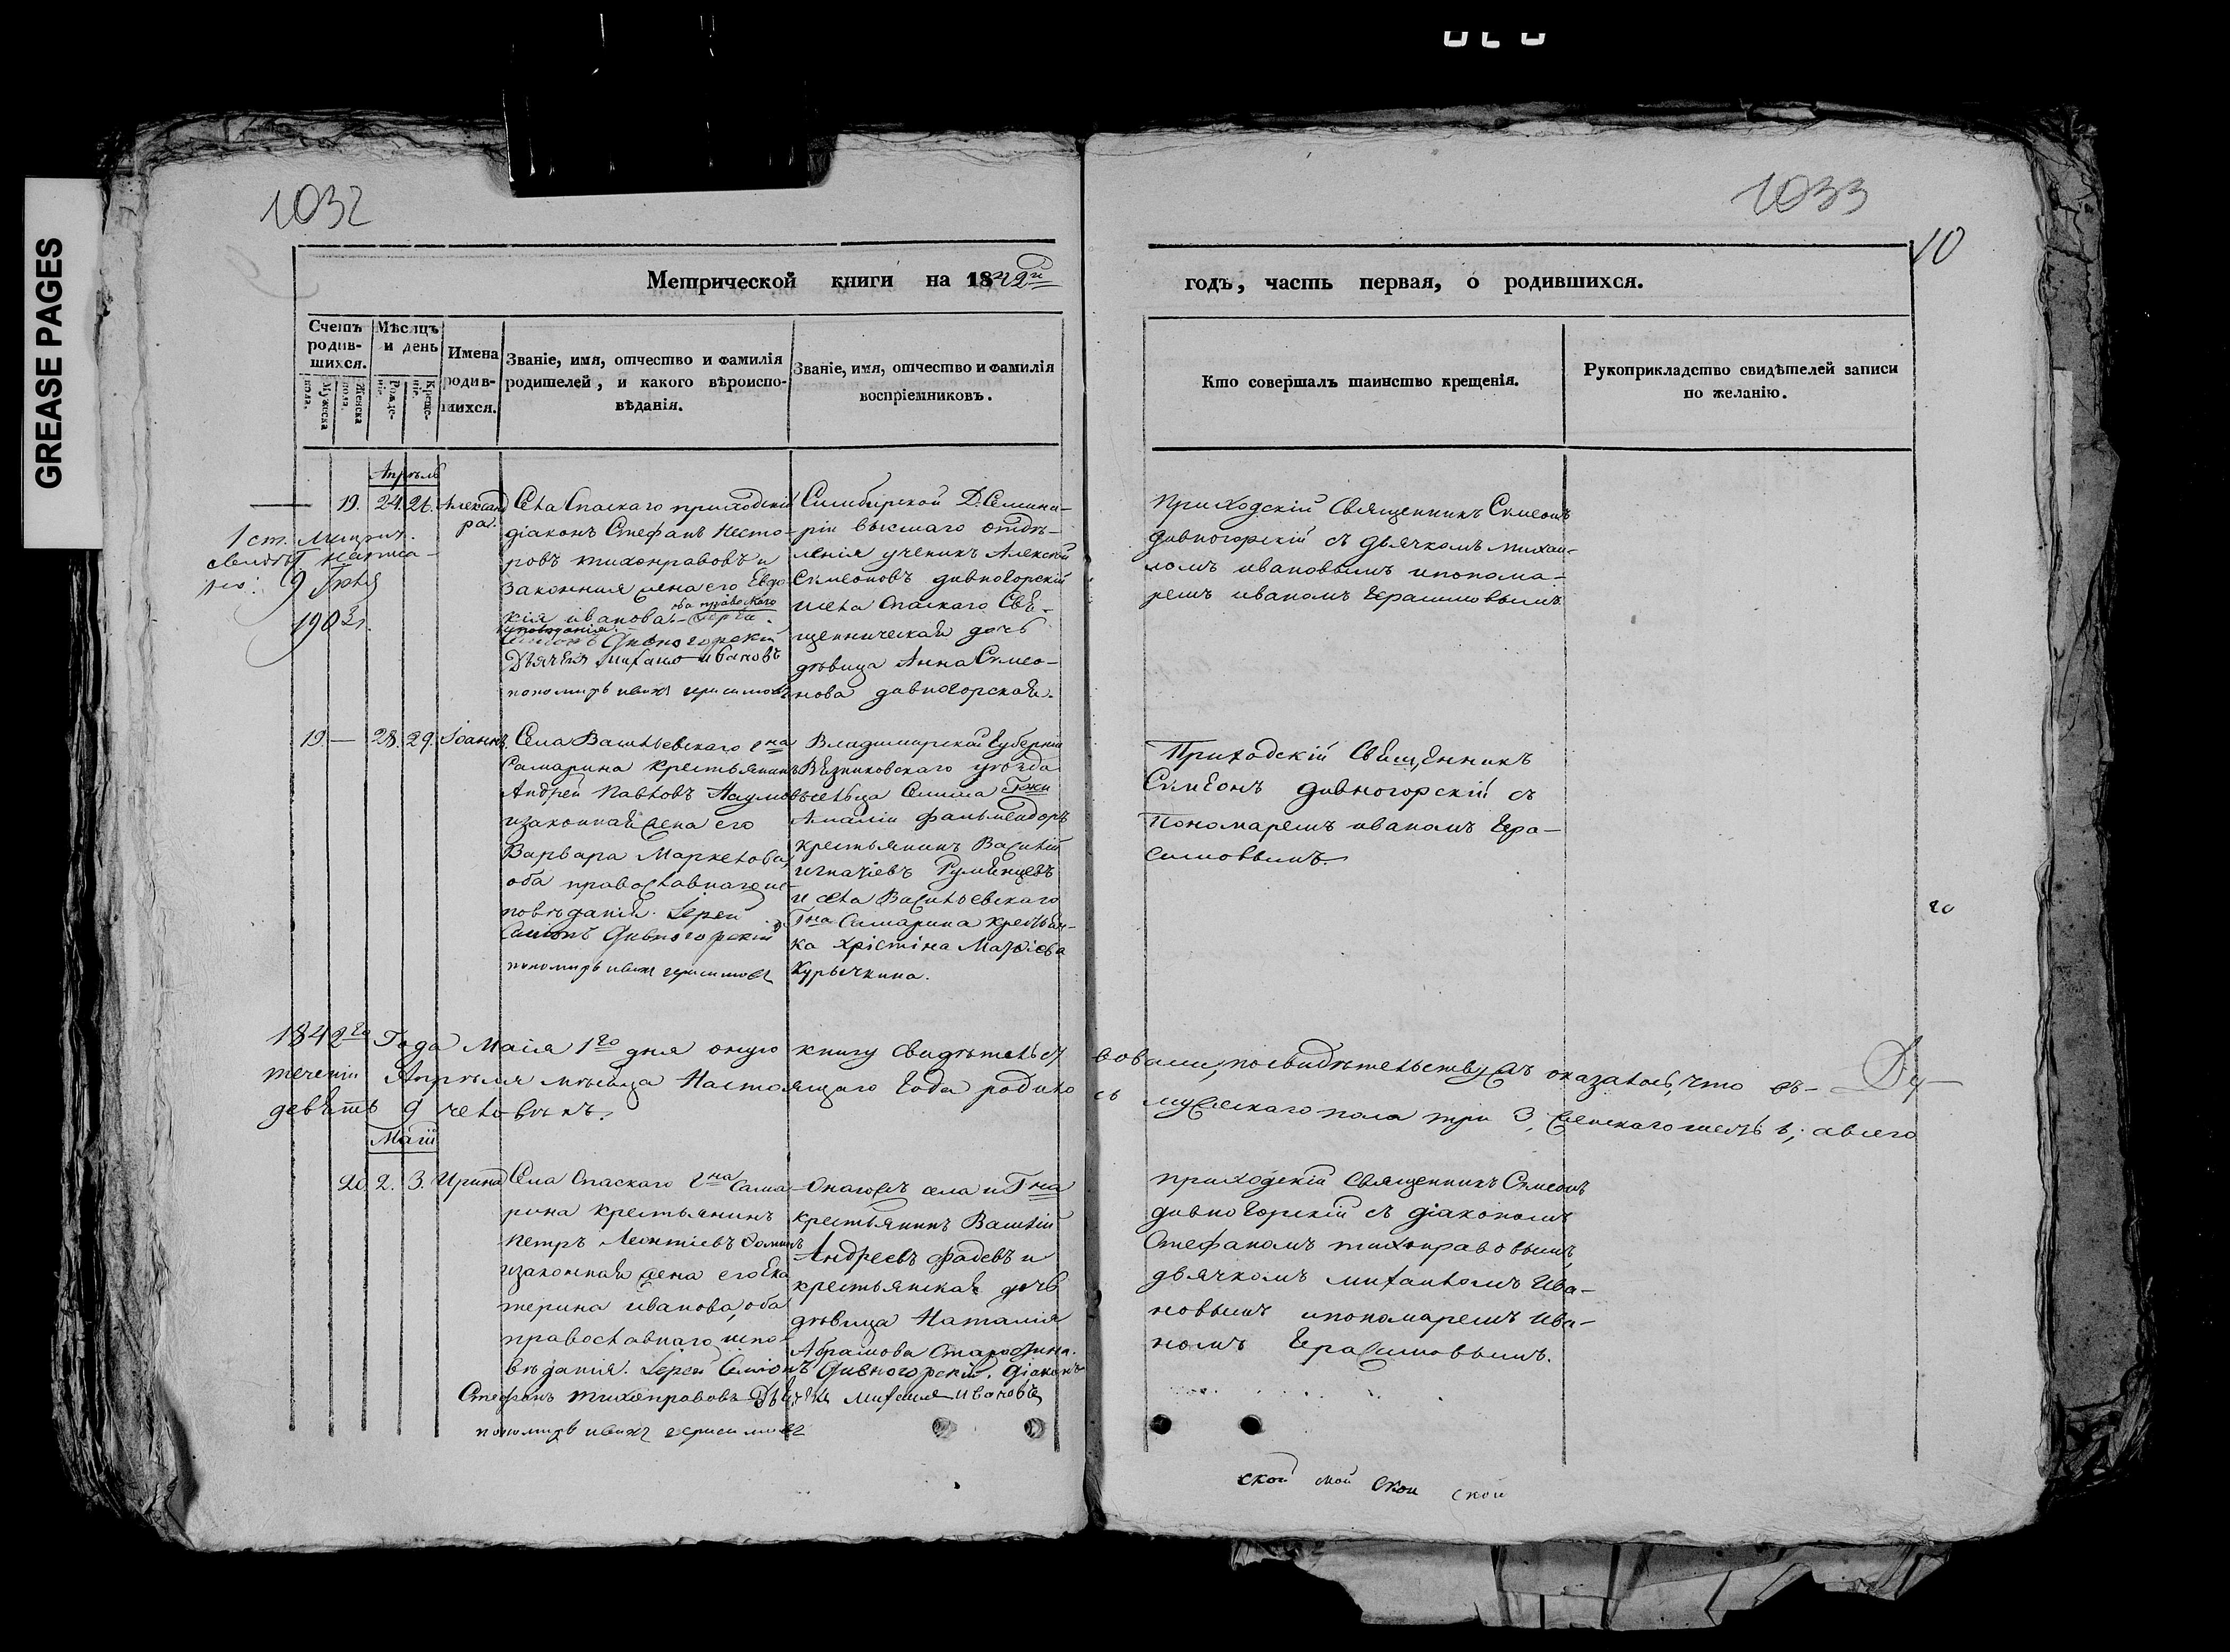 GREASE PAGES
1032
1033
10
Метрической книги на 1842й
годъ, часть первая, о родившихся.
Счетъ родив-шихся.
Мѣсяцъ и день
Мужеска пола.
Женска пола.
Рожде-нія.
Креще-нія.
Имена
родив-
шихся.
Званіе, имя, отчество и фамилія
родителей, и какого вѣроиспо-
вѣданія.
Званіе, имя, отчество и фамилія
воспріемниковъ.
Кто совершалъ таинство крещенія.
Рукоприкладство свидѣтелей записи
по желанію.
Апрѣль
— 19. 24. 26. Александ
ра.
1 ст. Митрич.
9
1903 г.
Села Спаскаго приходскій
діаконъ Стефанъ Несто-
ровъ тихонравовъ и
законная жена его Евдо-
кія иванова
оба православнаго
исповѣданія.
Симеонъ Дивногорскій
Дьячекъ Михаило Ивановъ
пономарь иванъ герасимовъ
Симбирской Д. Семина-
ріи высшаго отдѣ-
ленія ученикъ Алексѣй
Симеоновъ дивногорскій
и села Спаскаго Свя-
щенническая дочь
дѣвица Анна Симео-
нова дивногорская.
приходскій Священникъ Симеонъ
дивногорскій съ дьячкомъ михаи-
ломъ ивановымъ и понома-
ремъ иваномъ Герасимовымъ
19. — 28. 29. Іоаннъ.
Села Васильевскаго Гна
Самарина крестьянинъ
Андрей Павловъ Наумовъ
и законная жена его
Варвара Маркелова,
оба православнаго ис-
повѣданія. Іерей
Симіонъ Дивногорскій
пономарь иванъ герасимовъ
Владимирской Губерніи
Вязниковскаго уѣзда
сельца Гжи
Амаліи
крестьянинъ Василій
игнатіевъ Румянцевъ
и села Васильевскаго
Гна Самарина крестьян-
ка христина Матѳіева
Курычкина.
Приходскій Священникъ
Симеонъ дивногорскій съ
Пономаремъ иваномъ Гера-
симовымъ.
20
1842го Года Маія 1го дня оную книгу свидѣтельствовали, по свидѣтельству жъ оказалось, что въ
теченіи Апрѣля мѣсяца Настоящаго Года родилось мужескаго пола три 3, женскаго шесть 6, а всего
девять 9 человѣкъ.
Маій
20. 2. 3. Ирина
Села Спаскаго Гна Сама-
рина крестьянинъ
Петръ Леонтіевъ Ѳоминъ
и законная жена его Ека
терина иванова, оба
православнаго испо-
вѣданія. Іерей Симіонъ Дивногорскій. Діаконъ
Стефанъ Тихонравовъ Дьячекъ Михаило Ивановъ
пономарь иванъ герасимовъ
Онаго жъ села и Гна
крестьянинъ Василій
Андреевъ Фадѣевъ и
крестьянская дочь
дѣвица Наталія
Абрамова Старостина.
приходскій Священникъ Симеонъ
дивногорскій съ діакономъ
Стефаномъ тихонравовымъ,
дьячкомъ михаиломъ Ива-
новымъ и пономаремъ Ива-
номъ Герасимовымъ.
ской ской ской ской